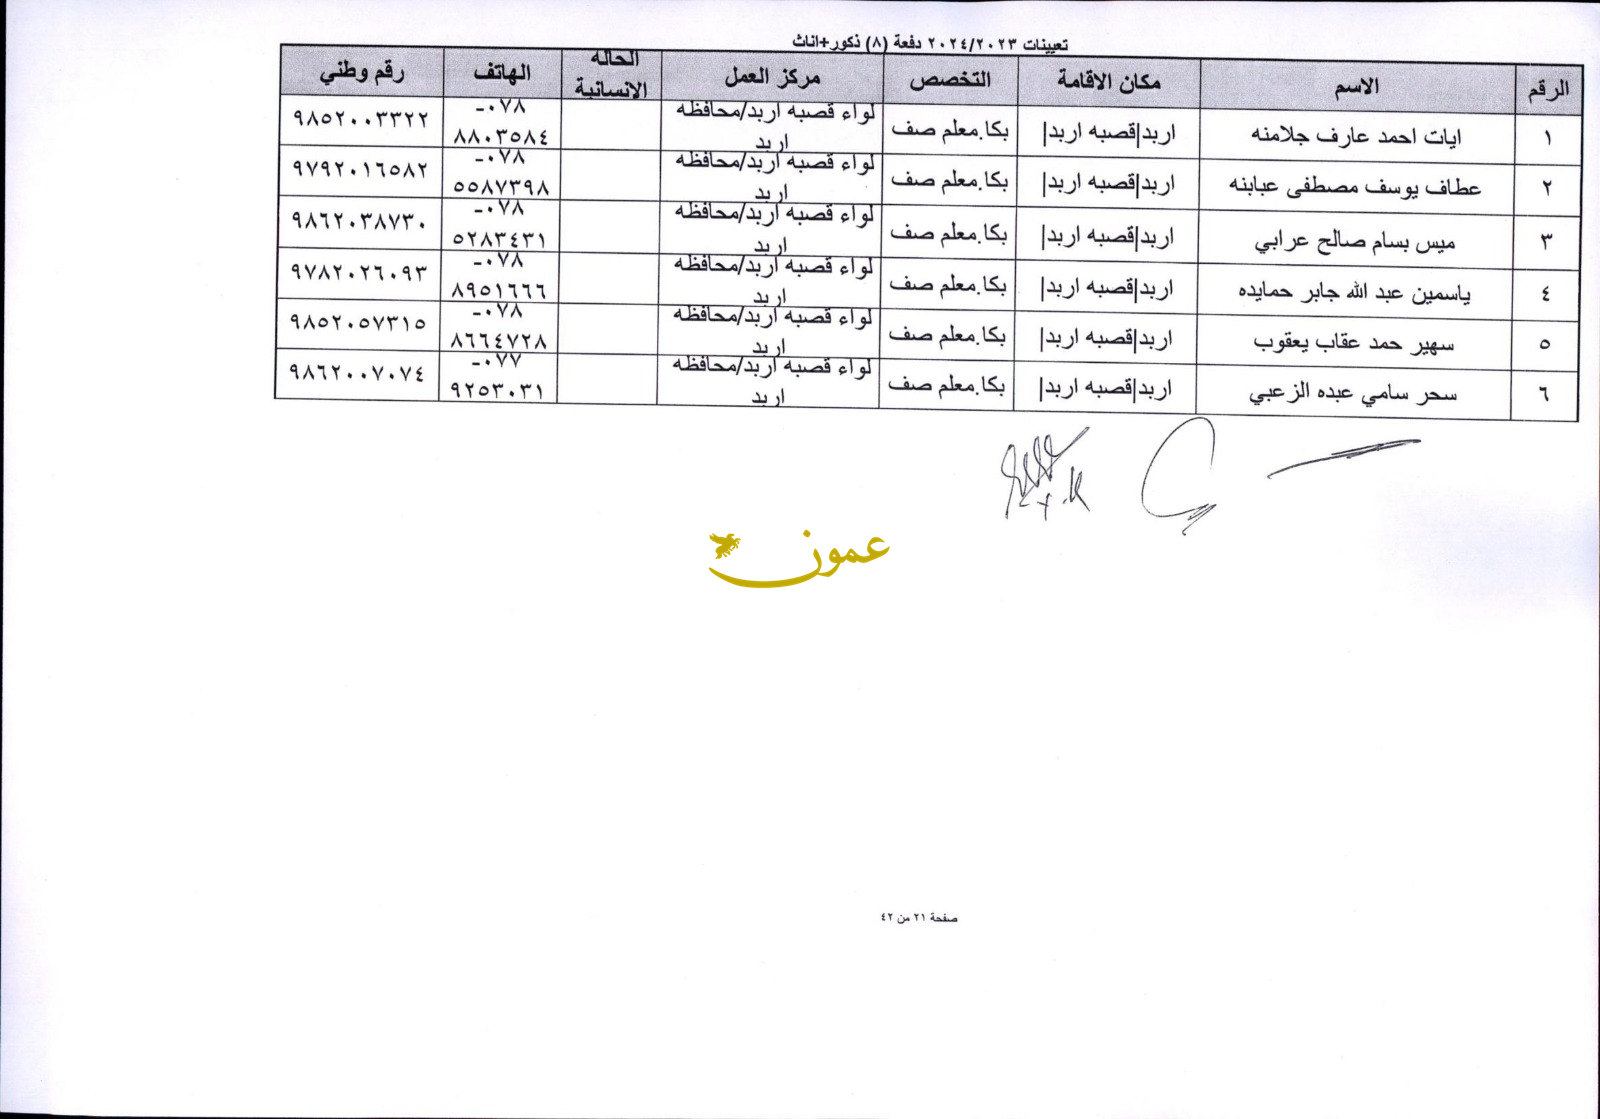 تعيينات ٢٠٢٤/٢٠٢٣ دفعة (٨) ذكور+اناث
الرقم الاسم مكان الاقامة التخصص مركز العمل الحاله الانسانية الهاتف رقم وطني
١ ايات احمد عارف جلامنه اربد|قصبه اربد| بكا.معلم صف لواء قصبه اربد/محافظه اربد ٠٧٨-٨٨٠٣٥٨٤ ٩٨٥٢٠٠٣٣٢٢
٢ عطاف يوسف مصطفى عبابنه اربد|قصبه اربد| بكا.معلم صف لواء قصبه اربد/محافظه اربد ٠٧٨-٥٥٨٧٣٩٨ ٩٧٩٢٠١٦٥٨٢
٣ ميس بسام صالح عرابي اربد|قصبه اربد| بكا.معلم صف لواء قصبه اربد/محافظه اربد ٠٧٨-٥٢٨٣٤٣١ ٩٨٦٢٠٣٨٧٣٠
٤ ياسمين عبد الله جابر حمايده اربد|قصبه اربد| بكا.معلم صف لواء قصبه اربد/محافظه اربد ٠٧٨-٨٩٥١٦٦٦ ٩٧٨٢٠٢٦٠٩٣
٥ سهير حمد عقاب يعقوب اربد|قصبه اربد| بكا.معلم صف لواء قصبه اربد/محافظه اربد ٠٧٨-٨٦٦٤٧٢٨ ٩٨٥٢٠٥٧٣١٥
٦ سحر سامي عبده الزعبي اربد|قصبه اربد| بكا.معلم صف لواء قصبه اربد/محافظه اربد ٠٧٧-٩٢٥٣٠٣١ ٩٨٦٢٠٠٧٠٧٤
عمون
صفحة ٢١ من ٤٢